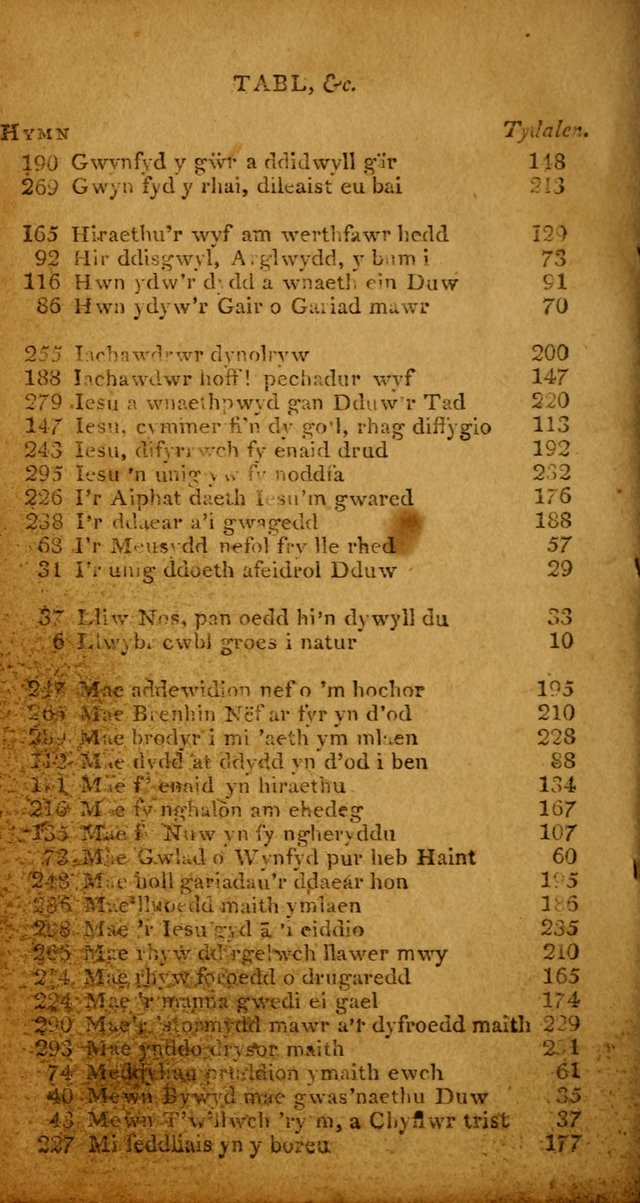 TABL, &c.
HYMN Tydalen.
190 Gwynfyd y gŵr a ddidwyll gâr 148
269 Gwyn fyd y rhai, dileaist eu bai 213
165 Hiraethu'r wyf am werthfawr hedd 129
92 Hir ddisgwyl, Arglwydd, y bum i 73
116 Hwn ydw'r dydd a wnaeth ein Duw 91
86 Hwn ydyw'r Gair o Gariad mawr 70
255 Iachawdwr dynolryw 200
188 Iachawdwr hoff! pechadur wyf 147
279 Iesu a wnaethpwyd gan Dduw'r Tad 220
147 Iesu, cymmer fi'n dy gol, rhag diffygio 113
243 Iesu, difyrrwch fy enaid drud 192
295 Iesu 'n unig yw fy noddfa 232
226 I'r Aipht daeth Iesu'm gwared 176
238 I'r ddaear a'i gwagedd 188
63 I'r Meusydd nefol fry lle rhed 57
31 I'r unig ddoeth afeidrol Dduw 29
37 Lliw Nos, pan oedd hi'n dywyll du 33
6 Llwybr cwbl groes i natur 10
247 Mae addewidion nef o 'm hochor 195
Mae Brenhin Nëf ar fyr yn d'od 210
289 Mae brodyr i mi 'aeth ym mlaen 228
112 Mae dydd at ddydd yn d'od i ben 88
Mae f' enaid yn hiraethu 134
216 Mae fy nghalon am ehedeg 167
135 Mae f' Nuw yn fy ngheryddu 107
73 Mae Gwlad o Wynfyd pur heb Haint 60
248 Mae holl gariadau'r ddaear hon 195
236 Mae lluoedd maith ymlaen 186
298 Mae 'r Iesu gyd â 'i eiddio 235
265 Mae rhyw ddirgelwch llawer mwy 210
214 Mae rhyw foroedd o drugaredd 165
224 Mae 'r manna gwedi ei gael 174
290 Mae'r 'stormydd mawr a'r dyfroedd maith 229
293 Mae ynddo drysor maith 231
74 Meddyliau ymaith ewch 61
40 Mewn Bywyd mae gwas'naethu Duw 35
43 Mewn T'wllwch 'ry m, a Chyflwr trist 37
227 Mi feddliais yn y boreu 177